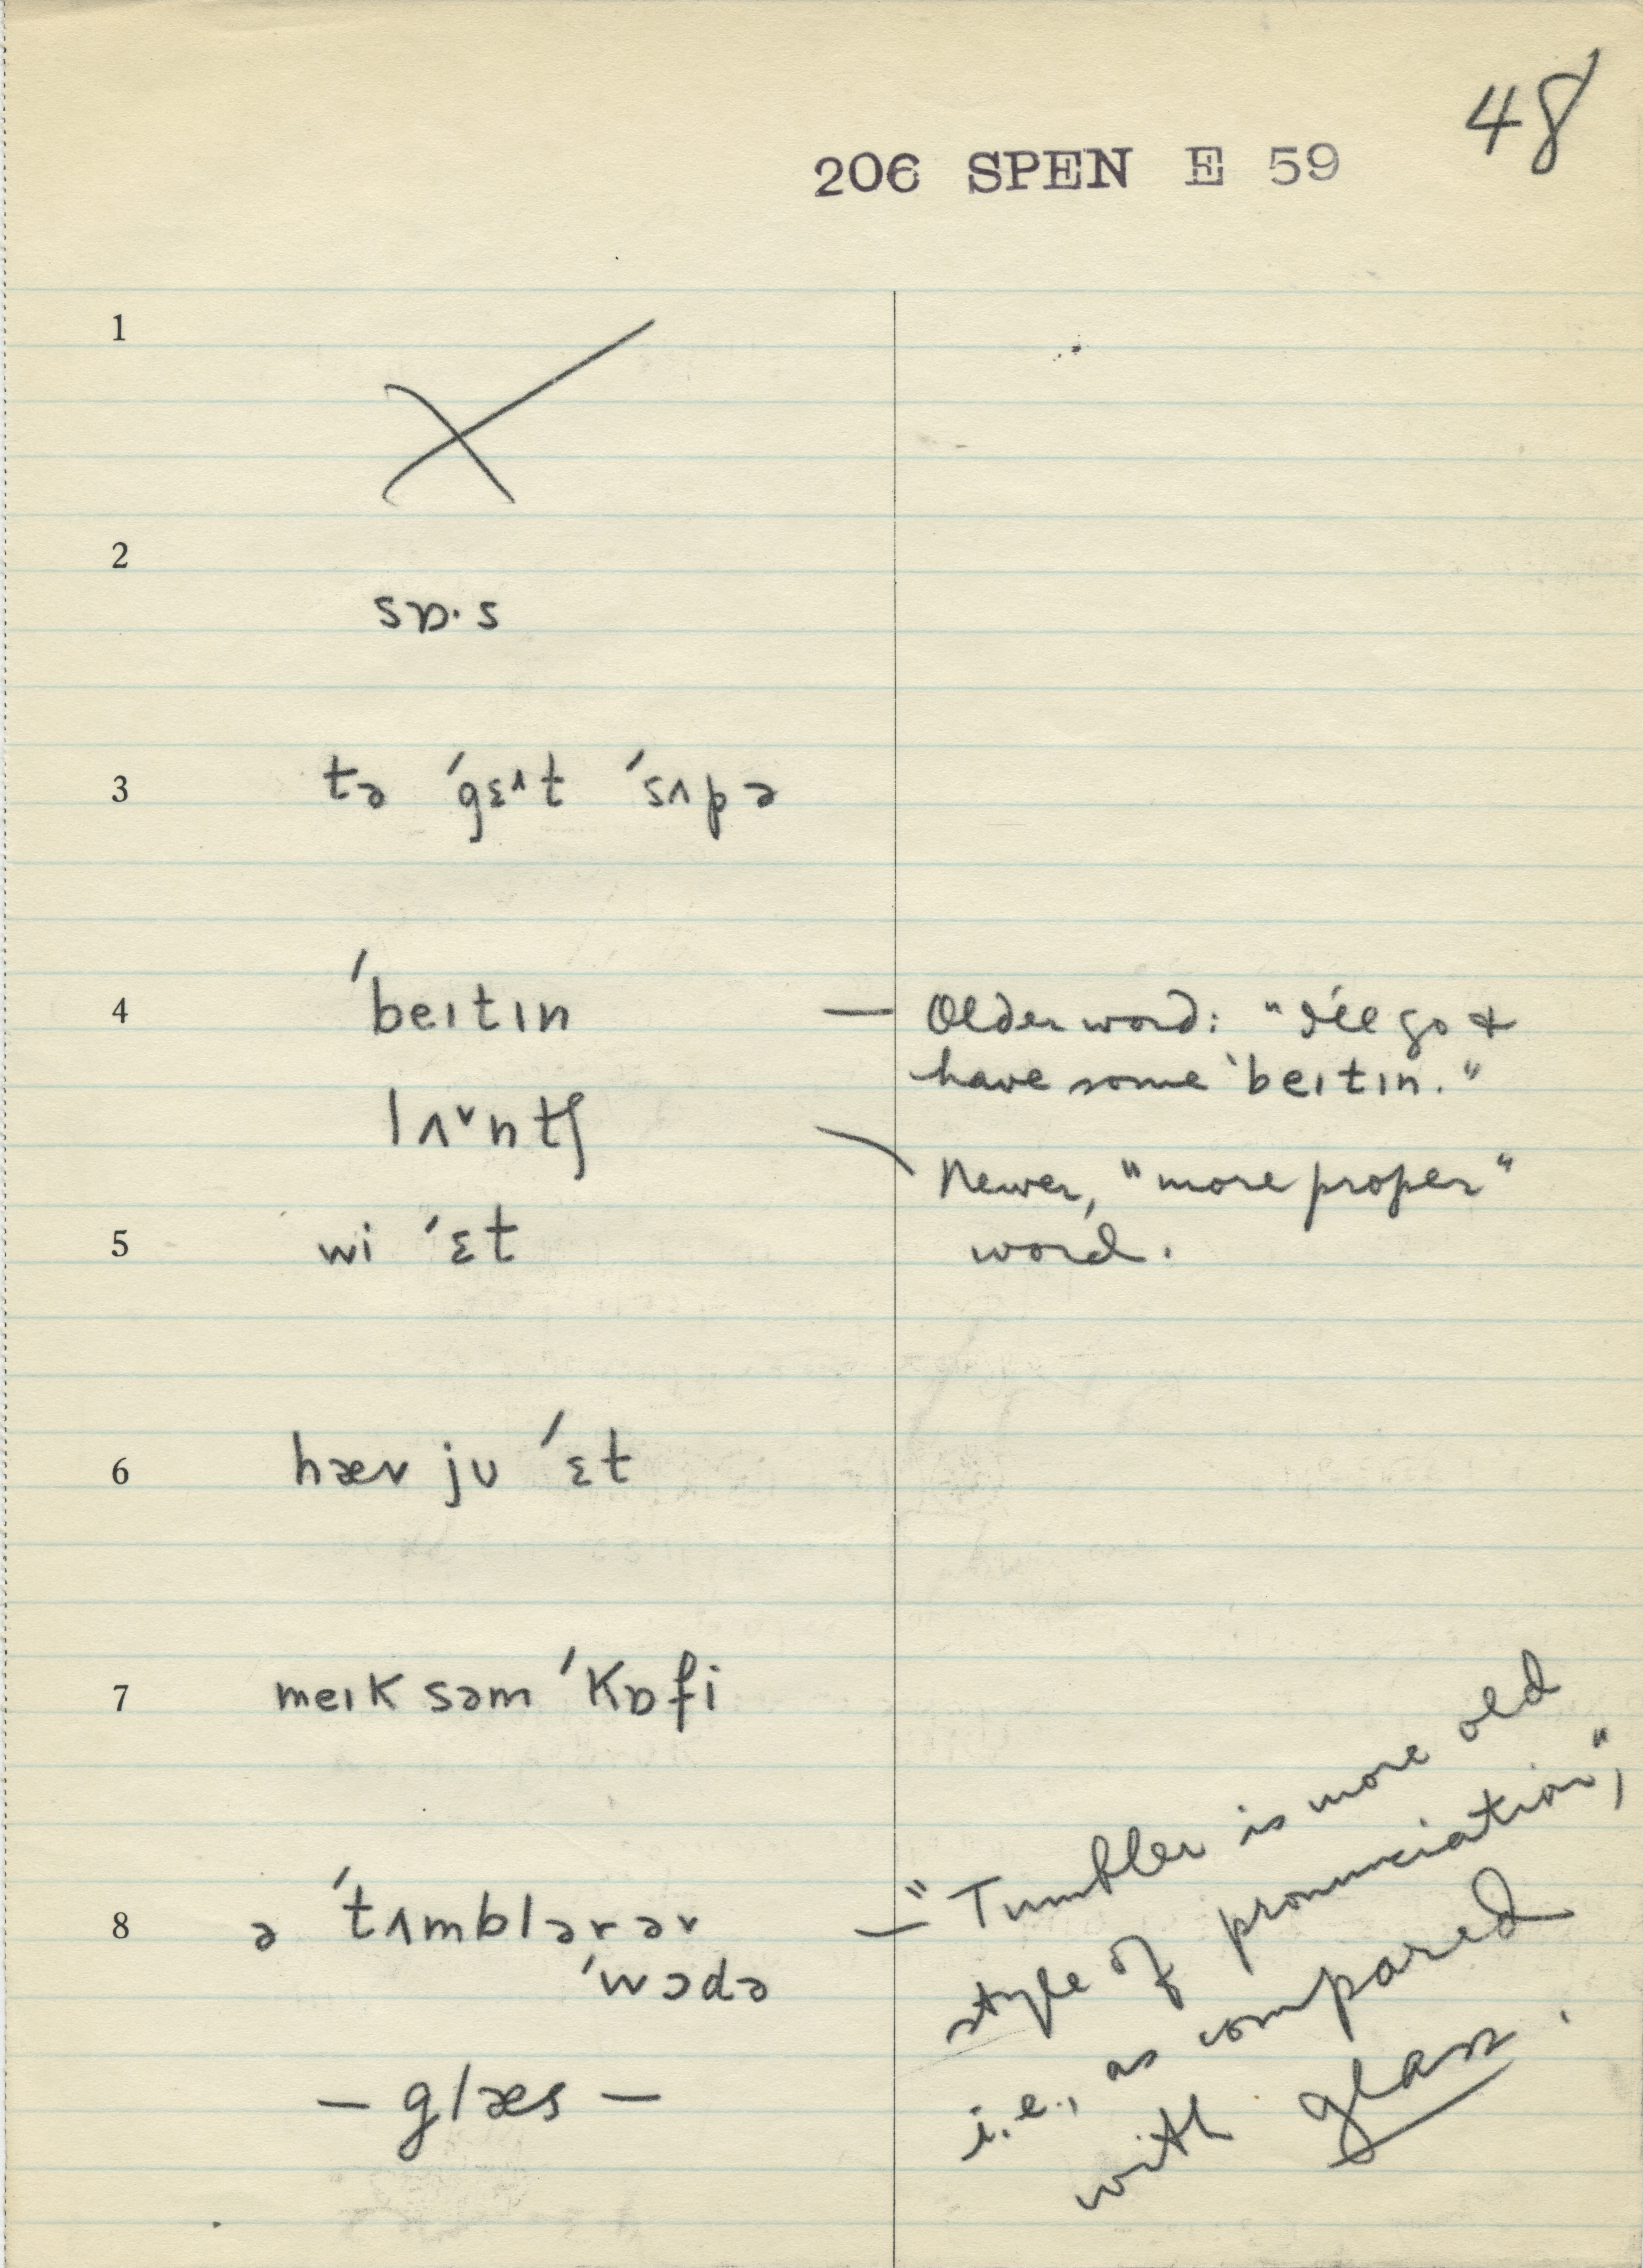 48
206 SPEN E 59
1
2
sɒ·s
3 tə ˈgɛ^t ˈsʌpə
4 ˈbeɪtɪn — Older word: "I'll go &
have some ˈbeɪtɪn."
lʌᵛntʃ
Newer, "more proper"
word.
5 wi ˈɛt
6 hæv jʊ ˈɛt
7 meɪk səm ˈkɒfi
8 ə ˈtʌmblərəv
ˈwɔdə
— glæs —
— "Tumbler is more old
style of pronunciation,"
i.e., as compared
with glass.